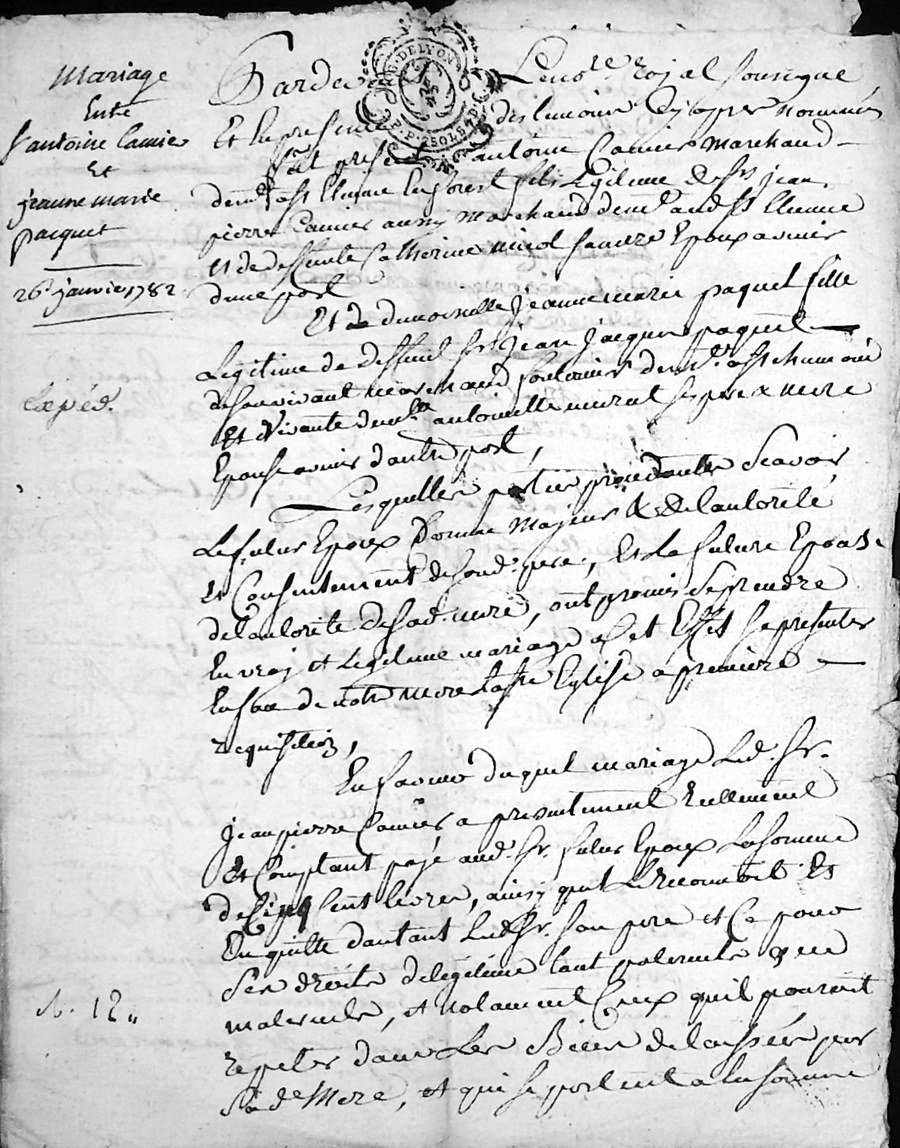 Mariage
Entre
Sr antoine Camier
Et
jeanne marie
pacquet
26e janvier 1782
Expéd.
N. 12
G. DE LYON
Pardevant Le note Royal Soussigné
Et En presence des temoins Cy apres nommés
fut present Sr antoine Camier Marchand
demt a St Etienne En forest fils Legitime de Sr jean
pierre Camier aussy Marchand demt aud. St Etienne
et de deffunte Catherine Epoux avenir
dune part
Et de demoiselle jeanne marie paquet fille
Legitime de deffunt Sr jean jacques paquet
de Son vivant Marchand demt. a St chamond
Et Vivante demlle antoinette Ses pere & mere
Epouse avenir dautre part,
Lesquelles parties procedantes Scavoir
Le futur Epoux Comme Majeur & de Lautorité
Et Consentement de Sond. pere, Et La future Epouse
de Lautorité de Sad. mere, ont promis Se prendre
En vray et Legitime mariage & a cet Effet Se presenter
En face de notre mere Ste Eglise a premiere
requisition,
En faveur duquel mariage Led. Sr.
jean pierre Camier a presentement reellement
Et Comptant payé aud. Sr. futur Epoux La Somme
de Cinq Cent livres, ainsy quil Le reconnoit Et
En quitte dautant Led. Sr. Son pere et Ce pour
Ses droits de legitime tant paternels que
maternels, et notament Ceux quil pouroit
repeter dans Les Biens delaissés par
Sade Mere, et qui Se portent a La Somme